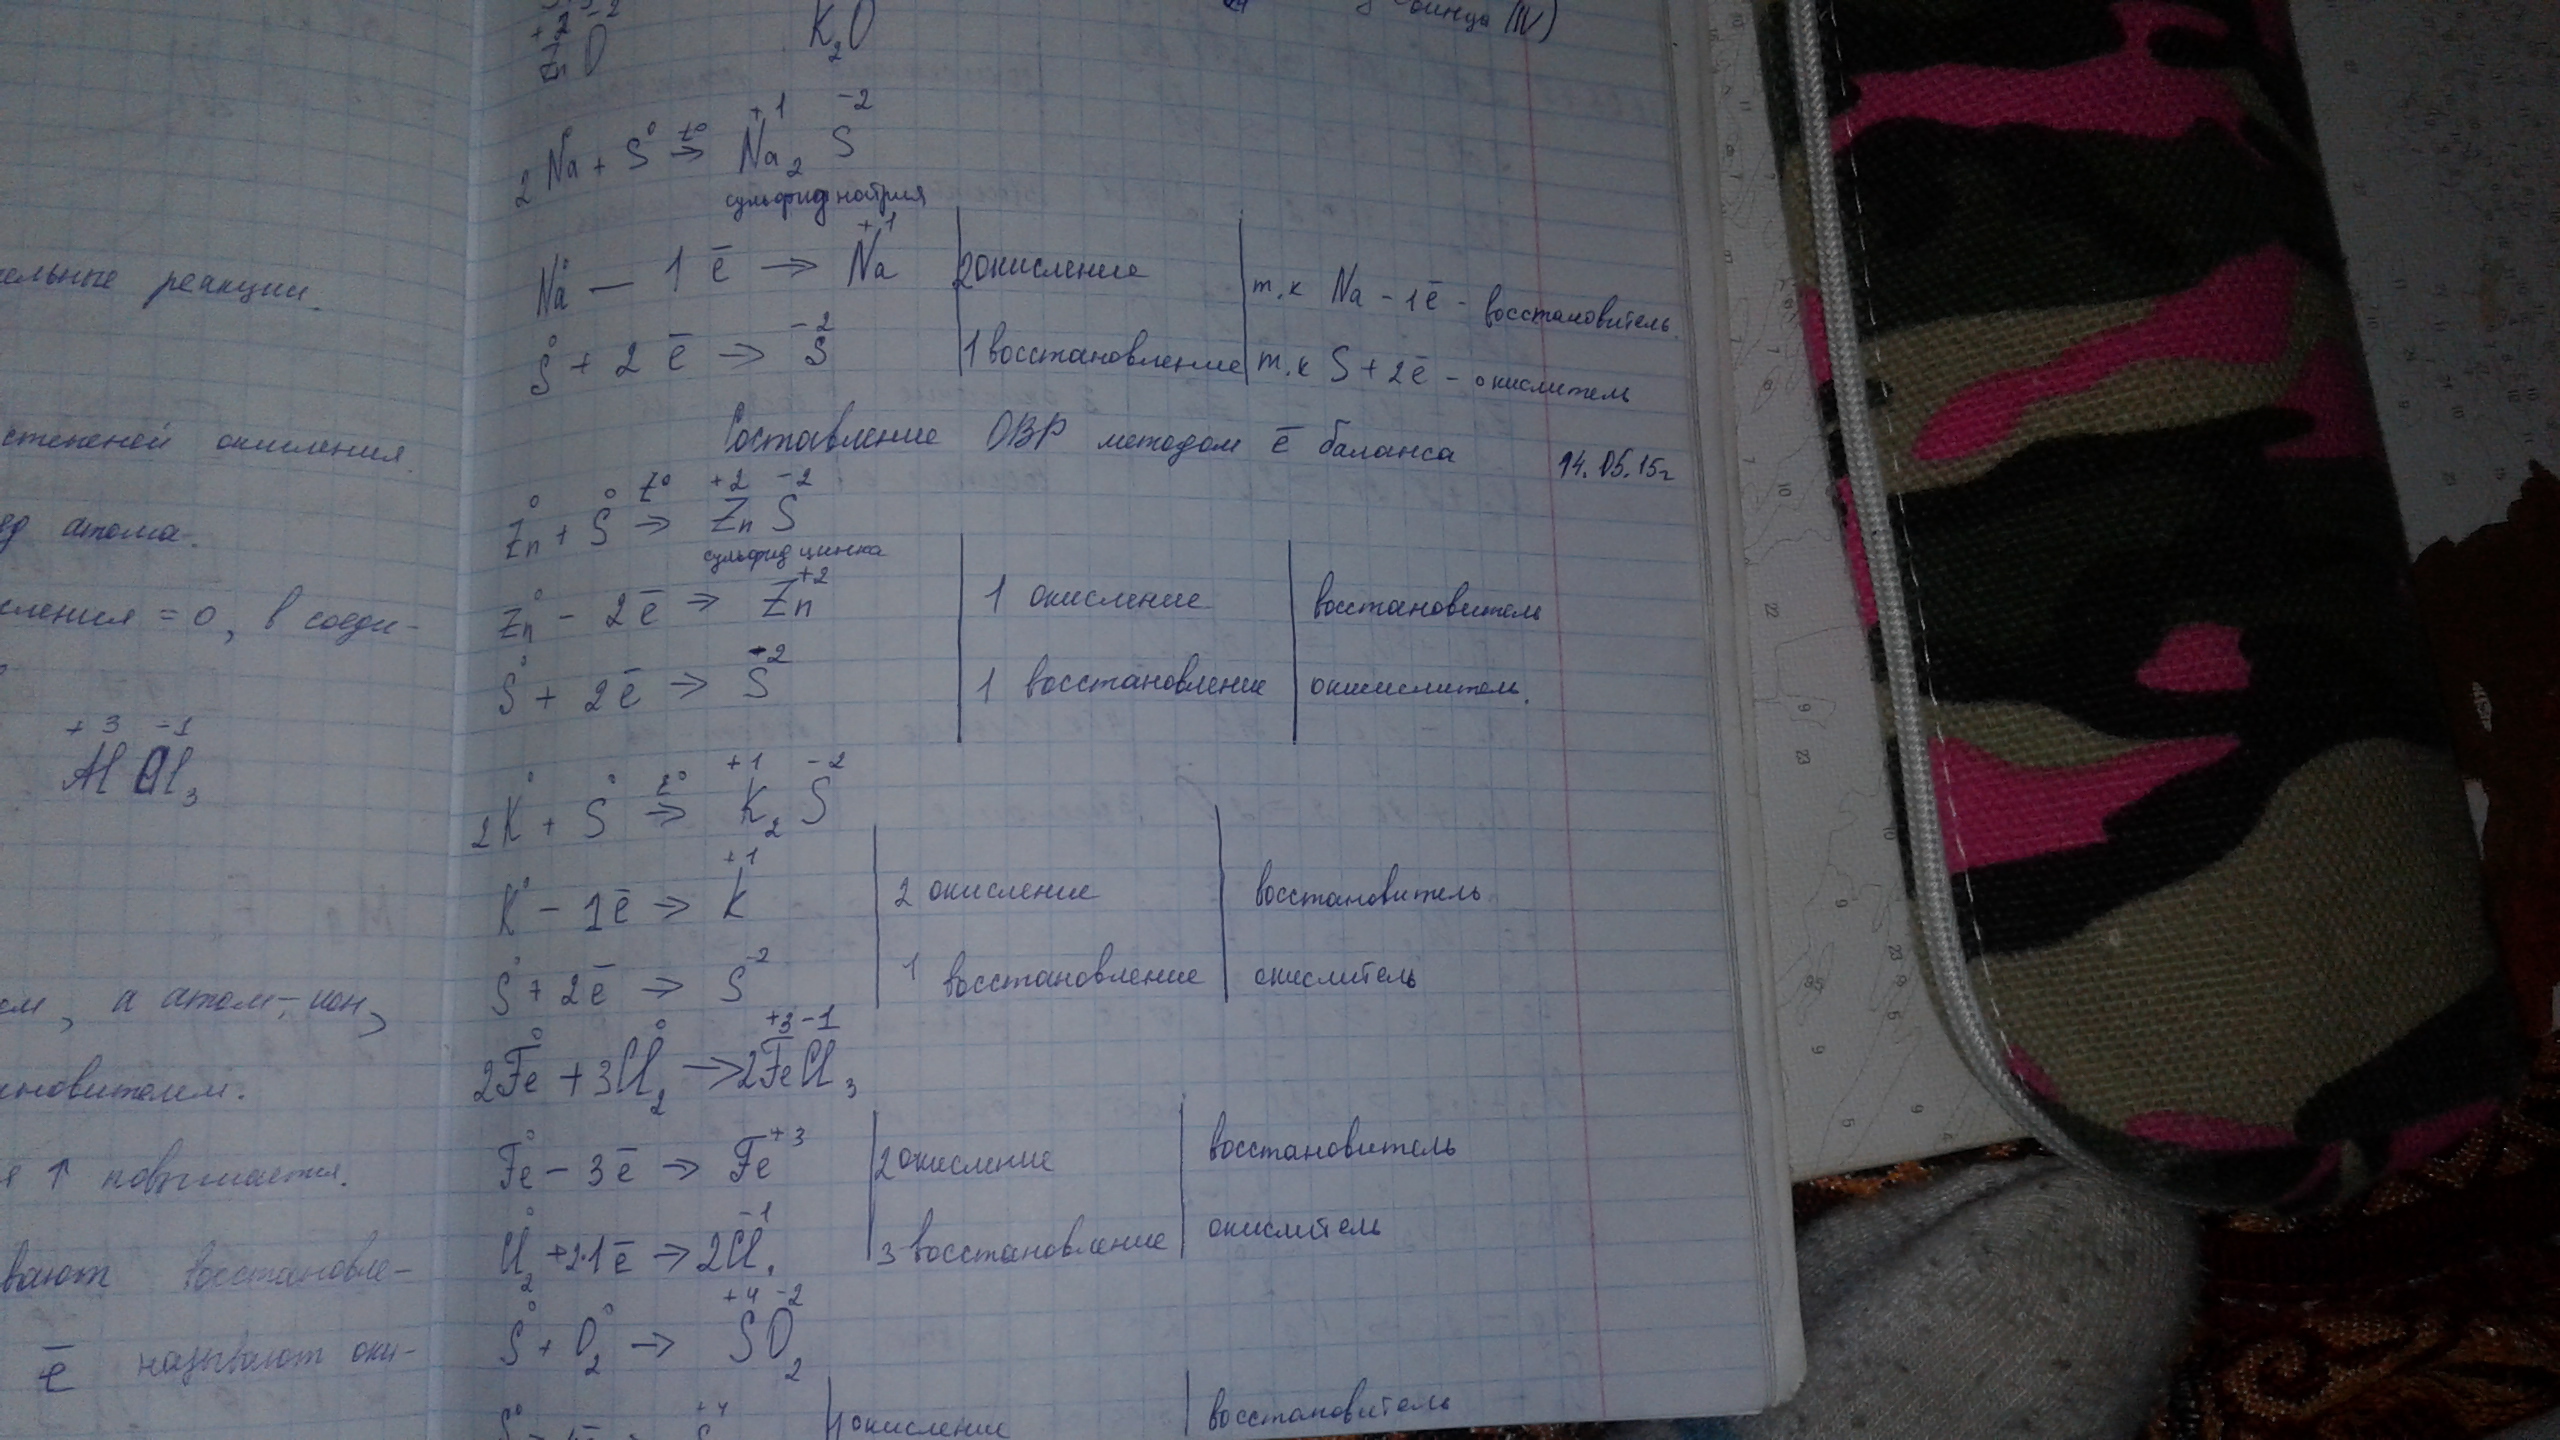 ельные реакции.
степеней окисления.
атома.
ления = 0, в соеди-
+3 -1
AlCl3
ем, а атом-ион,
ановителем.
я ↑ повышается.
вают восстановле-
ē называют оки-
K2O
(IV)
+1 -2
2Na + S⁰ t⁰→ Na2 S
сульфид натрия
Na⁰ — 1 ē → Na⁺¹ | 2 окисление | т.к Na - 1ē - восстановитель
S⁰ + 2 ē → S⁻² | 1 восстановление | т.к S + 2ē - окислитель
Составление ОВР методом ē баланса 14.05.15г
Zn⁰ + S⁰ t⁰→ Zn⁺² S⁻²
сульфид цинка
Zn⁰ - 2ē → Zn⁺² | 1 окисление | восстановитель
S⁰ + 2ē → S⁻² | 1 восстановление | окислитель.
2K⁰ + S⁰ t⁰→ K2⁺¹ S⁻²
K⁰ - 1ē → K⁺¹ | 2 окисление | восстановитель
S⁰ + 2ē → S⁻² | 1 восстановление | окислитель
2Fe⁰ + 3Cl2⁰ → 2Fe⁺³Cl3⁻¹
Fe⁰ - 3ē → Fe⁺³ | 2 окисление | восстановитель
Cl2⁰ + 2·1ē → 2Cl⁻¹ | 3 восстановление | окислитель
S⁰ + O2⁰ → S⁺⁴O2⁻²
1 окисление | восстановитель